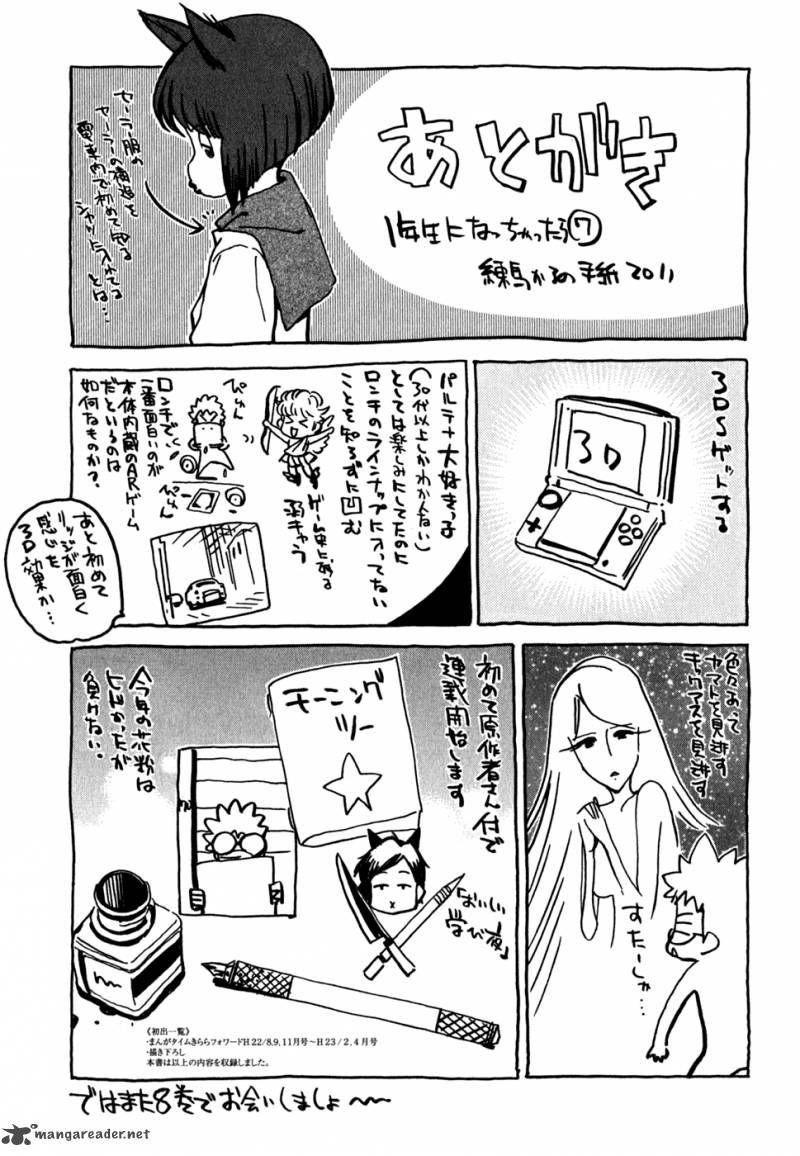 あとがき
1年生になっちゃったら⑦
練馬かるの手紙 2011
セーラー服の
セーラーの構造を
電車の中で初めて知る
シャツに入れてる
とは…
3DSゲットする
3D
パルテナ大好きっ子
(30代以上しかわかんない)
としては楽しみにしてたのに
ロンチのラインナップに入ってない
ことを知らずに凹む
ゲーム史にある
弱キャラ
ぴゅん
ぴゅん
ロンチで
一番面白いのが
本体内蔵のARゲーム
だというのは
如何なものか?
あと初めて
リッジが面白く
感じた
3D効果か…
色々あって
ヤマトを見逃す
キックアスを見逃す
すたーしゃ…
初めて原作者さん付で
連載開始します
モーニング
ツー
「おいしい
学び夜」
今年の花粉は
しんどかったが
負けない。
《初出一覧》
・まんがタイムきららフォワードH22/8,9,11月号〜H23/2,4月号
・描き下ろし
本書は以上の内容を収録しました。
ではまた8巻でお会いしましょ〜
mangareader.net